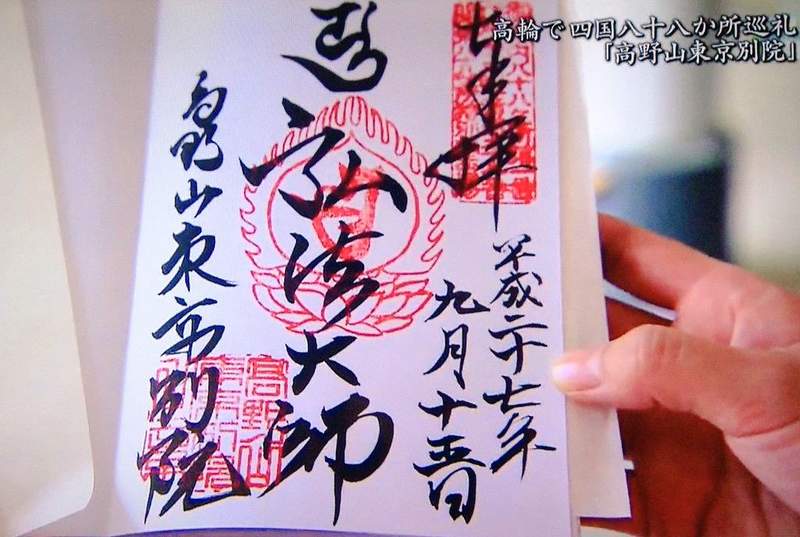 高輪で四国八十八か所巡礼
「高野山東京別院」
奉拝
平成二十七年
九月十五日
弘法大師
高野山東京別院